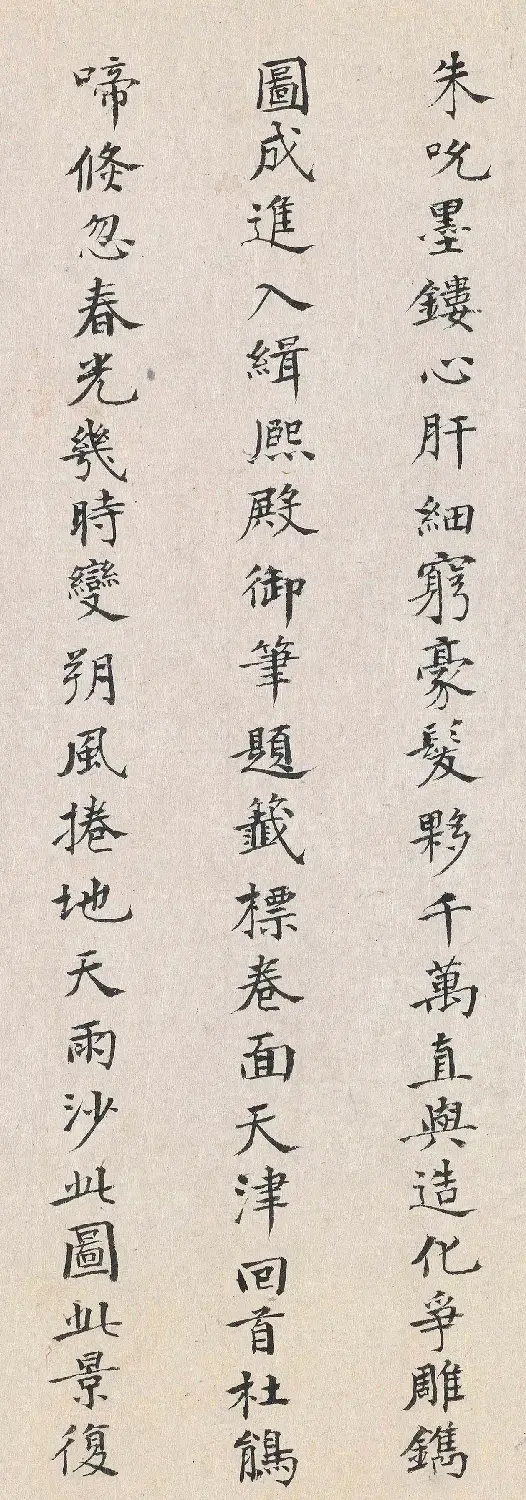 朱吮墨鏤心肝細窮豪髮夥千萬直與造化爭雕鐫
圖成進入緝熙殿御筆題籤標卷面天津回首杜鵑
啼倏忽春光幾時變朔風捲地天雨沙此圖此景復